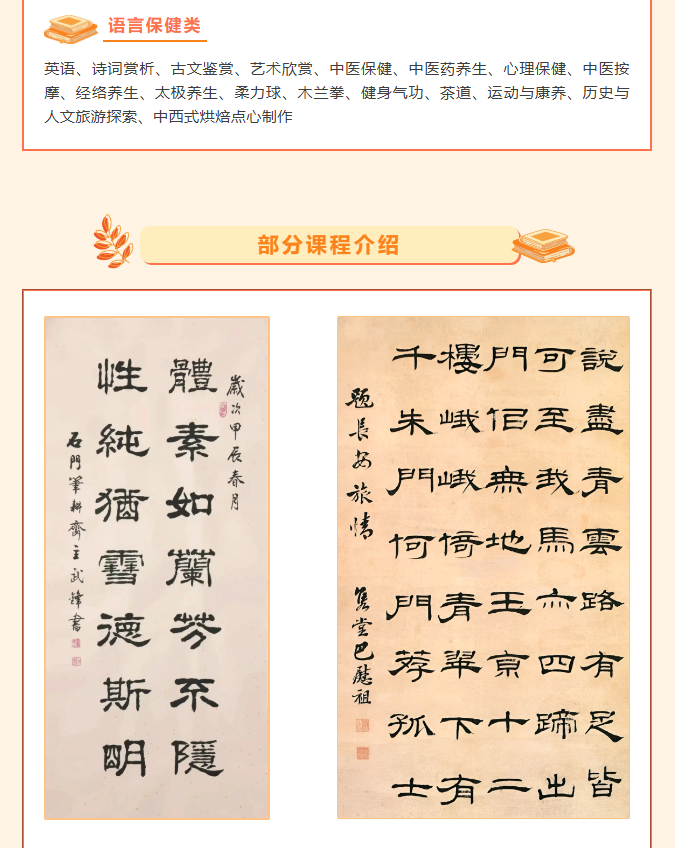 语言保健类
英语、诗词赏析、古文鉴赏、艺术欣赏、中医保健、中医药养生、心理保健、中医按
摩、经络养生、太极养生、柔力球、木兰拳、健身气功、茶道、运动与康养、历史与
人文旅游探索、中西式烘焙点心制作
部分课程介绍
歲次甲辰春月
體素如蘭芬不隱
性純猶雪德斯明
石門筆耕齋主武鋒書
說盡青雲路有足皆
可至我馬亦四蹄出
門佀無地玉京十二
樓峨峨倚青翠下有
千朱門何門荐孤士
題長安旅情
雋堂巴慰祖